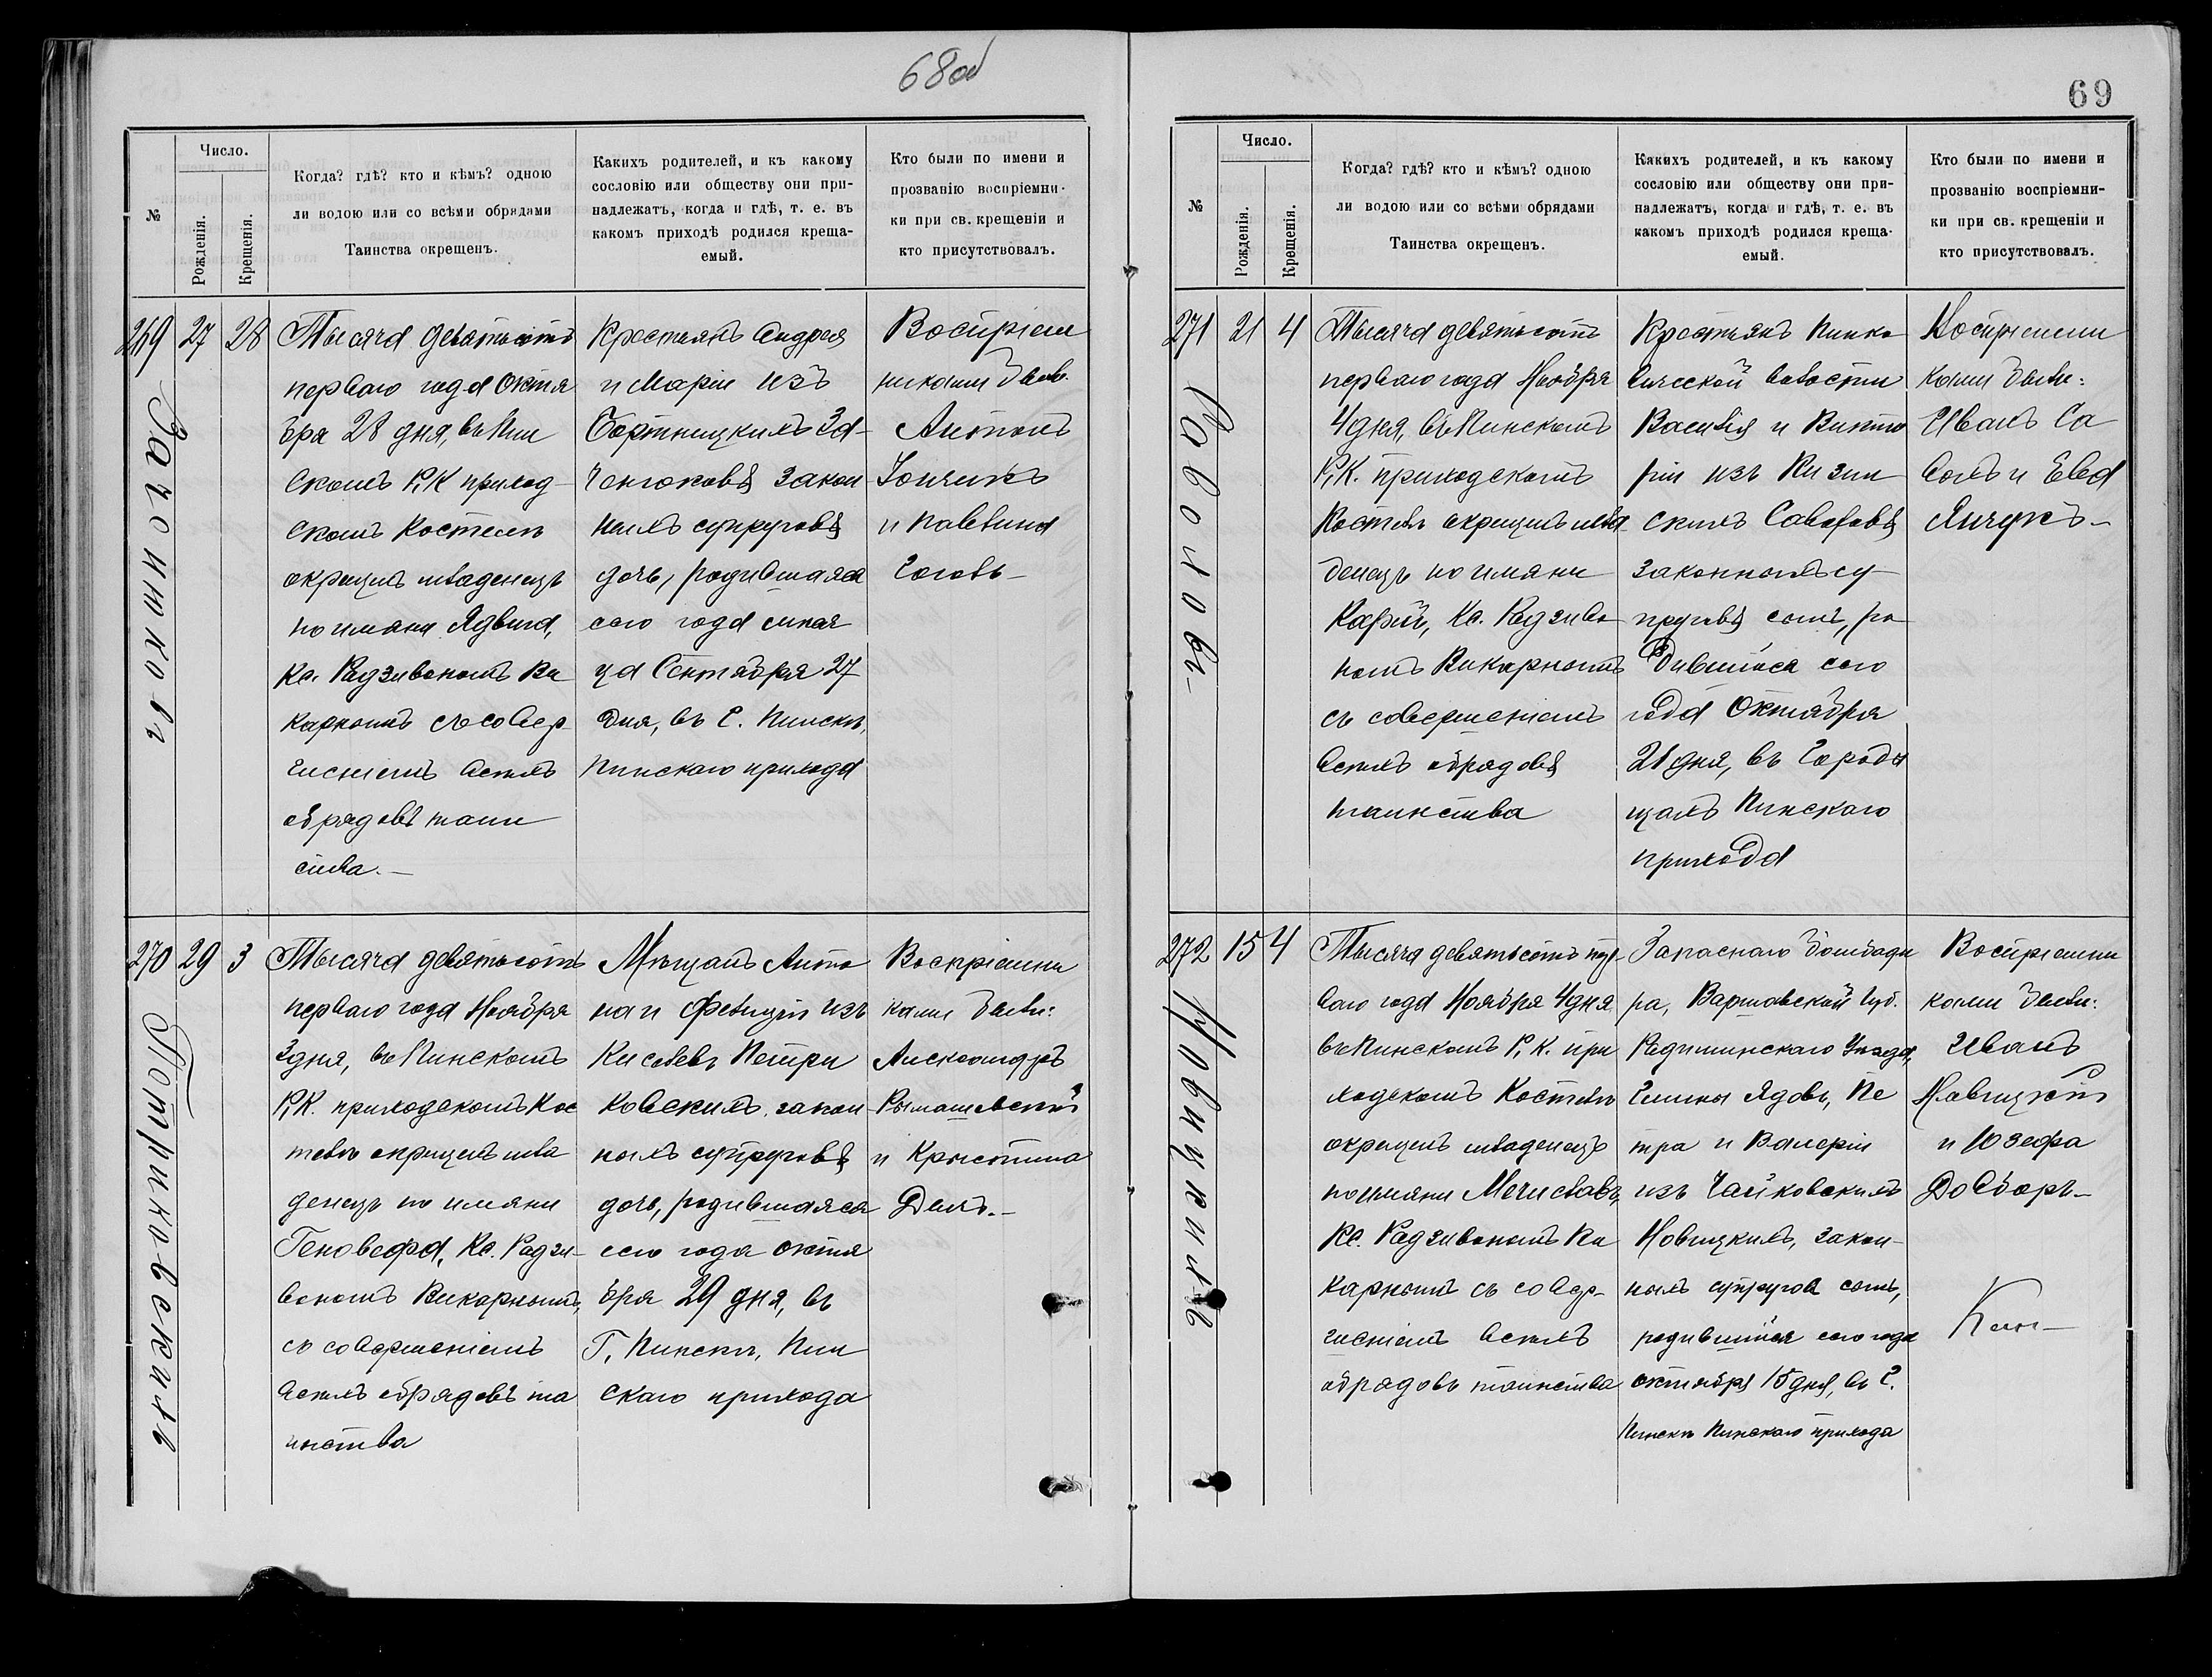 68об
№
Число.
Рожденія.
Крещенія.
Когда? гдѣ? кто и кѣмъ? одною
ли водою или со всѣми обрядами
Таинства окрещенъ.
Какихъ родителей, и къ какому
сословію или обществу они при-
надлежатъ, когда и гдѣ, т. е. въ
какомъ приходѣ родился креща-
емый.
Кто были по имени и
прозванію воспріемни-
ки при св. крещеніи и
кто присутствовалъ.
269 27 28
Тысяча девятьсотъ
перваго года Октя
бря 28 дня, въ Пин
скомъ Р.К. приход-
скомъ Костелѣ
окрещенъ младенецъ
по имяни Ядвига,
Кс. Радзивономъ Ви
карнымъ съ совер-
шеніемъ всѣхъ
обрядовъ таин
ства.-
Крестьянъ Андрея
и Маріи изъ
Бортницкихъ За-
ченюковъ закон
ныхъ супруговъ
дочь, родившаяся
сего года мися
ца Сентября 27
дня, въ г. Пинскѣ,
Пинскаго прихода
Воспріем
никами были.
Антонъ
и Павлина
270 29 3
Петриковскихъ
Тысяча девятьсотъ
перваго года Ноября
3 дня, въ Пинскомъ
Р.К. приходскомъ Кос
телѣ окрещенъ мла
денецъ по имяни
Геновефа, Кс. Радзи-
вономъ Викарнымъ,
съ совершеніемъ
всѣхъ обрядовъ та
инства
Мѣщанъ Анто
на и Фелиціи изъ
Киселевъ Петри
ковскихъ, закон
ныхъ супруговъ
дочь, родившаяся
сего года Октя
бря 29 дня, въ
Г. Пинскѣ, Пин
скаго прихода
Воспріемни
ками были:
Александръ
Рымашевскій
и Крыстина
69
№
Число.
Рожденія.
Крещенія.
Когда? гдѣ? кто и кѣмъ? одною
ли водою или со всѣми обрядами
Таинства окрещенъ.
Какихъ родителей, и къ какому
сословію или обществу они при-
надлежатъ, когда и гдѣ, т. е. въ
какомъ приходѣ родился креща-
емый.
Кто были по имени и
прозванію воспріемни-
ки при св. крещеніи и
кто присутствовалъ.
271 21 4
Тысяча девятьсотъ
перваго года Ноября
4 дня, въ Пинскомъ
Р.К. приходскомъ
Костелѣ окрещенъ мла-
денецъ по имяни
Кс. Радзиво
номъ Викарнымъ
съ совершеніемъ
всѣхъ обрядовъ
таинства
Крестьянъ Пинко
вичской волости
Василія и Викто
ріи изъ
законныхъ су-
пруговъ сынъ, ро
дившійся сего
года Октября
21 дня, въ Городи
щахъ Пинскаго
прихода
Воспріемни
ками были:
Иванъ Са
и Ева
Янчукъ-
272 15 4
Новицкихъ
Тысяча девятьсотъ пер-
ваго года Ноября 4 дня
въ Пинскомъ Р.К. при
ходскомъ Костелѣ
окрещенъ младенецъ
по имяни Мечиславъ,
Кс. Радзивономъ Ви
карнымъ съ совер-
шеніемъ всѣхъ
обрядовъ таинства
Запаснаго бомбади
ра, Варшавской Губ.
Радиминскаго Уѣзда,
Гмины Ядовъ, Пе
тра и Валеріи
изъ Чайковскихъ
Новицкихъ, закон-
ныхъ супругов сынъ,
родившійся сего года
октября 15 дня, въ г.
Пинскѣ Пинскаго прихода
Воспріемни
ками были:
Иванъ
Навицкій
и Юзефа
Довборъ-